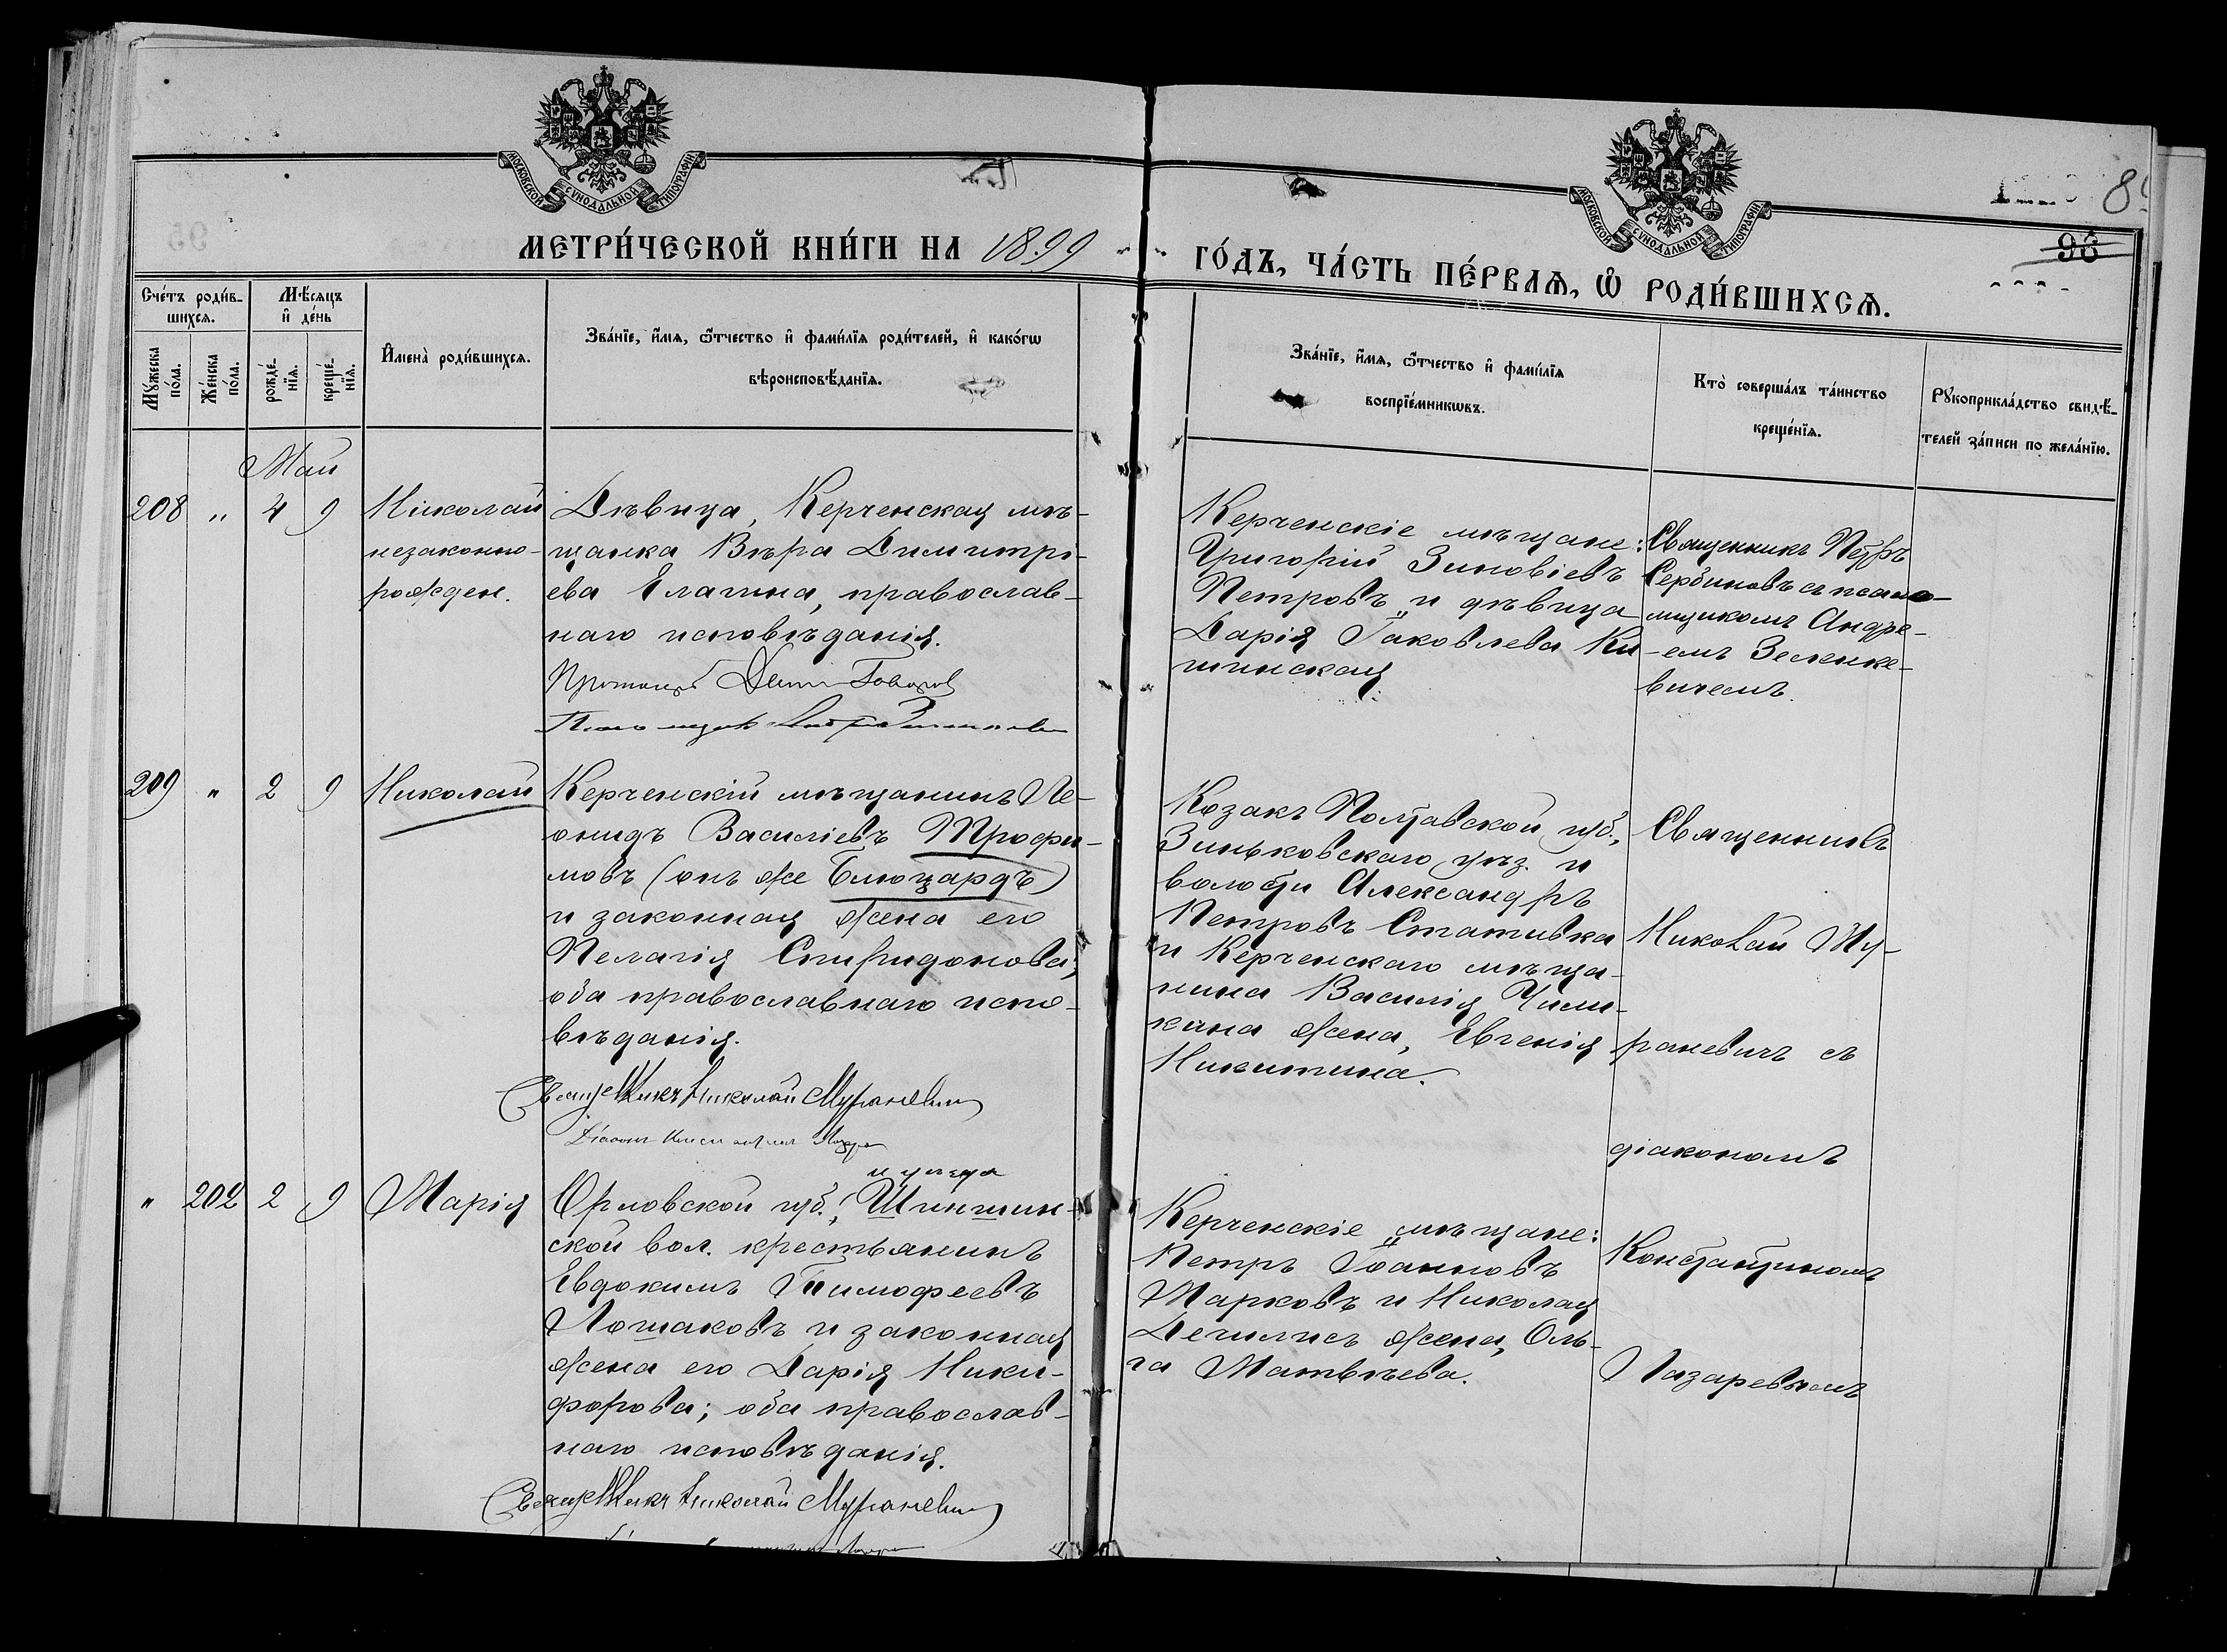 МОСКОВСКОЙ СѴНОДАЛЬНОЙ ТИПОГРАФІИ
МОСКОВСКОЙ СѴНОДАЛЬНОЙ ТИПОГРАФІИ
8
96
МЕТРИ́ЧЕСКОЙ КНИ́ГИ НА 1899
ГО́ДЪ, ЧА́СТЬ ПЕ́РВАѦ, Ѡ҆ РОДИ́ВШИХСѦ.
Сче́тъ роди́в-
шихсѧ.
Мѣ́сяцъ
и҆ де́нь
Мꙋ́жеска
по́ла.
Же́нска
по́ла.
рожде́-
нїѧ.
креще́-
нїѧ.
И҆мена̀ роди́вшихсѧ.
Зва́нїе, и҆́мѧ, ѻ҆́тчество и҆ фамі́лїѧ роди́телей, и҆ како́гѡ
вѣроисповѣ́данїѧ.
Зва́нїе, и҆́мѧ, ѻ҆́тчество и҆ фамі́лїѧ
воспрїе́мникѡвъ.
Кто̀ соверша́лъ та́инство
креще́нїѧ.
Рꙋкоприкла́дство свидѣ́-
телей за́писи по жела́нїю.
Май
208 " 4 9 Николай
незаконно-
рожден.
Дѣвица, Керченская мѣ-
щанка Вѣра Димитрі-
ева Елагина, православ-
наго исповѣданія.
Керченскіе мѣщане:
Григорій Зиновіевъ
Петровъ и дѣвица
Дарія Іаковлева Ки-
шинская
Священникъ Петръ
Сербиновъ съ псало-
мщикомъ Андре-
емъ Зеленке-
вичемъ.
209 " 2 9 Николай
Керченскій мѣщанинъ Ле-
онидъ Василіевъ Трофи-
мовъ (онъ же Блюцардъ)
и законная жена его
Пелагія Спиридонова;
оба православнаго испо-
вѣданія.
Священникъ Николай Мураневичъ
Козакъ Полтавской губ.,
Зиньковскаго уѣз. и
волости Александръ
Петровъ Стативка
и Керченскаго мѣща-
нина Василія Чили-
кина жена, Евгенія
Никитина.
Священникъ
Николай Му-
раневичъ съ
діакономъ
" 202 2 9 Марія
и уѣзда
Орловской губ., Шиншин-
ской вол. крестьянинъ
Евдокимъ Тимофеевъ
Лошаковъ и законная
жена его Дарія Ники-
форова; оба православ-
наго исповѣданія.
Священникъ Николай Мураневичъ
Керченскіе мѣщане:
Петръ Іоанновъ
Марковъ и Николая
Дечилисъ жена, Оль-
га Матвѣева.
Константиномъ
Лазаревымъ